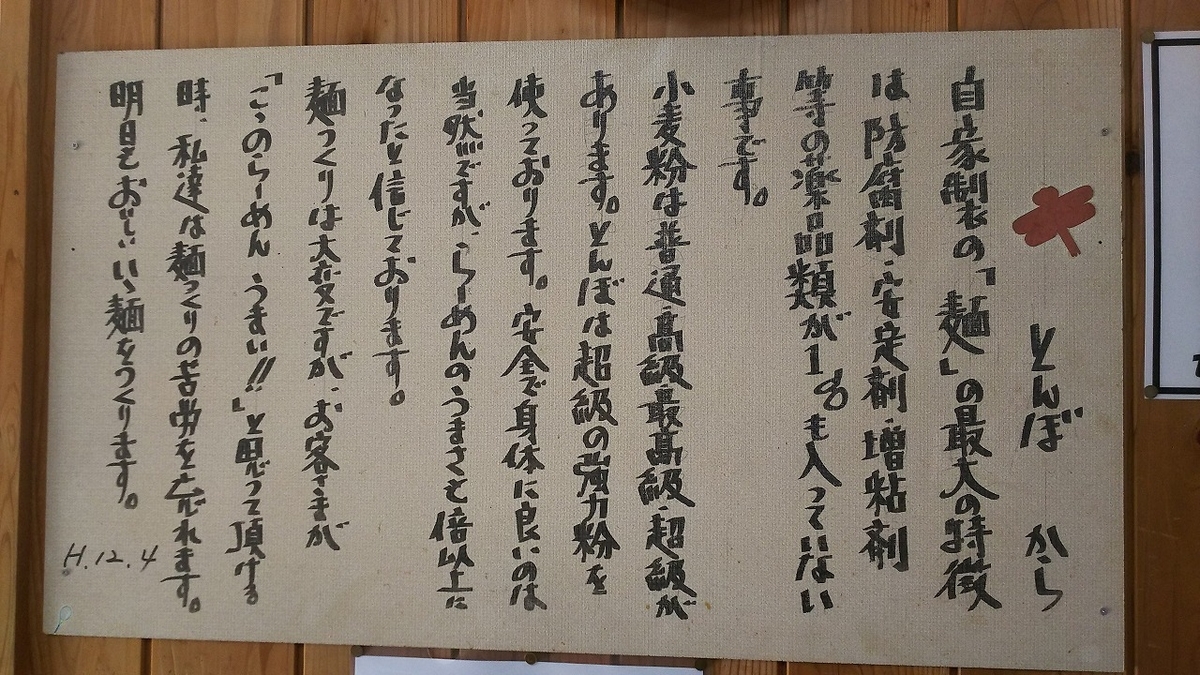 とんぼ から
自家製の「麺」の最大の特徴
は防腐剤・安定剤・増粘剤
等の薬品類が1gも入っていない
事です。
小麦粉は普通・高級・最高級・超級が
あります。とんぼは超級の強力粉を
使っております。安全で身体に良いのは
当然ですが、らーめんのうまさも倍以上に
なったと信じております。
麺つくりは大変ですが、お客さまが
「こゝのらーめん うまい!!」と思って頂ける
時、私達は麺つくりの苦労を忘れます。
明日もおいしいゝ麺をつくります。
H.12.4